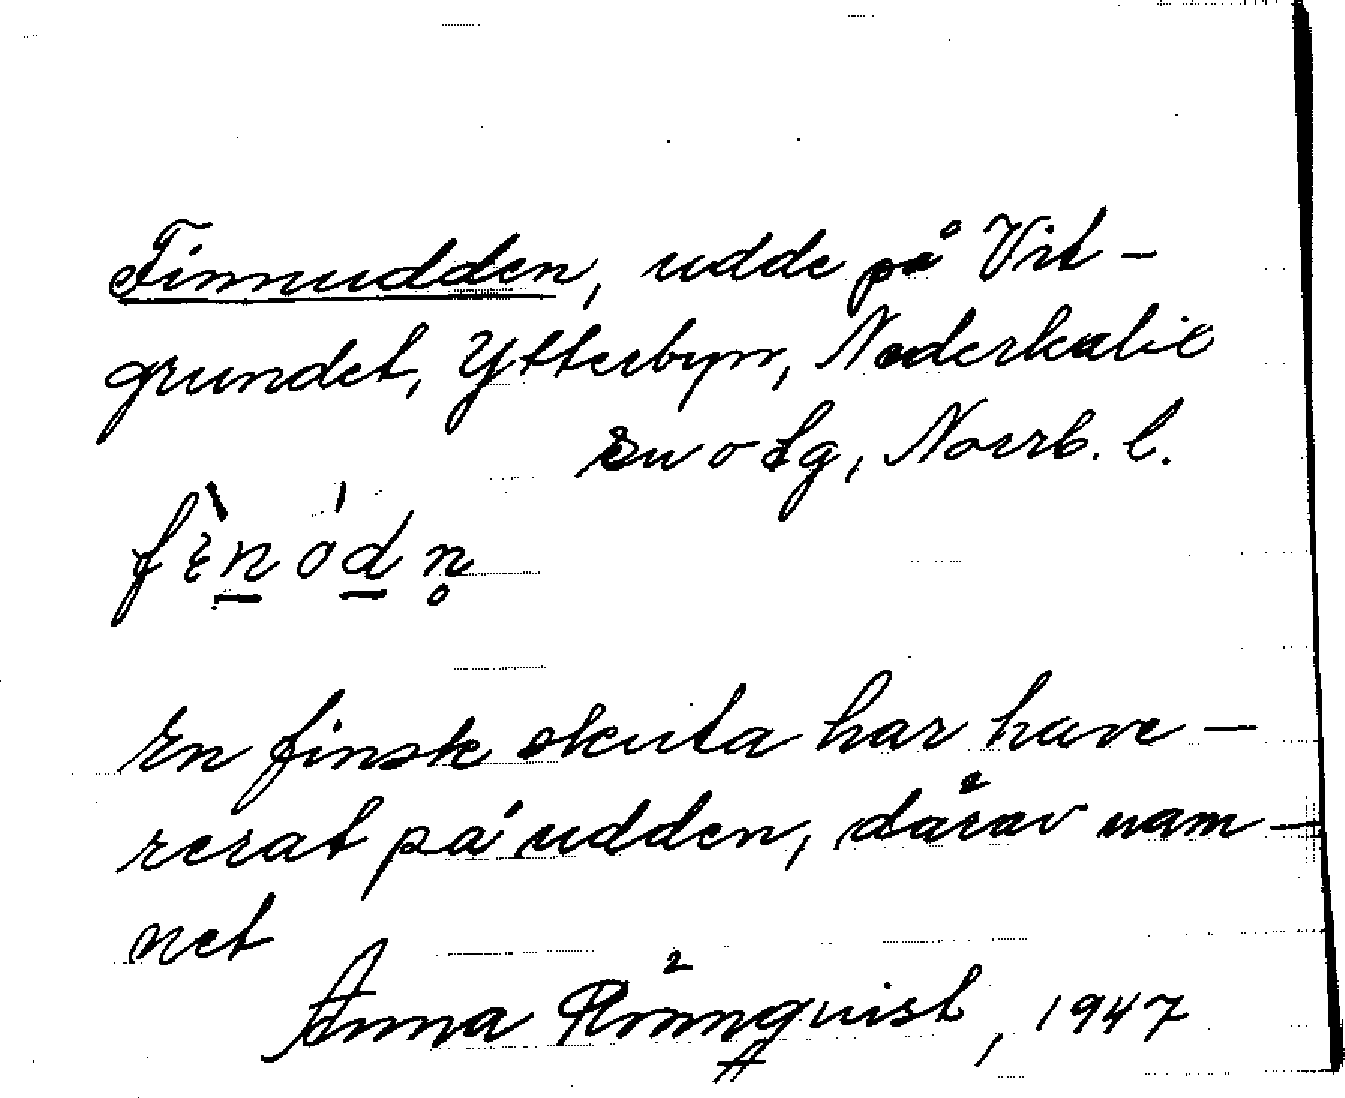 Finnudden, udde på Vit-
grundet, Ytterbyn, Nederkalix
sn o tg, Norrb. l.
fènódn̥
En finsk skuta har have-
rerat på udden, därav nam-
net
Anna Rönnquist, 1947